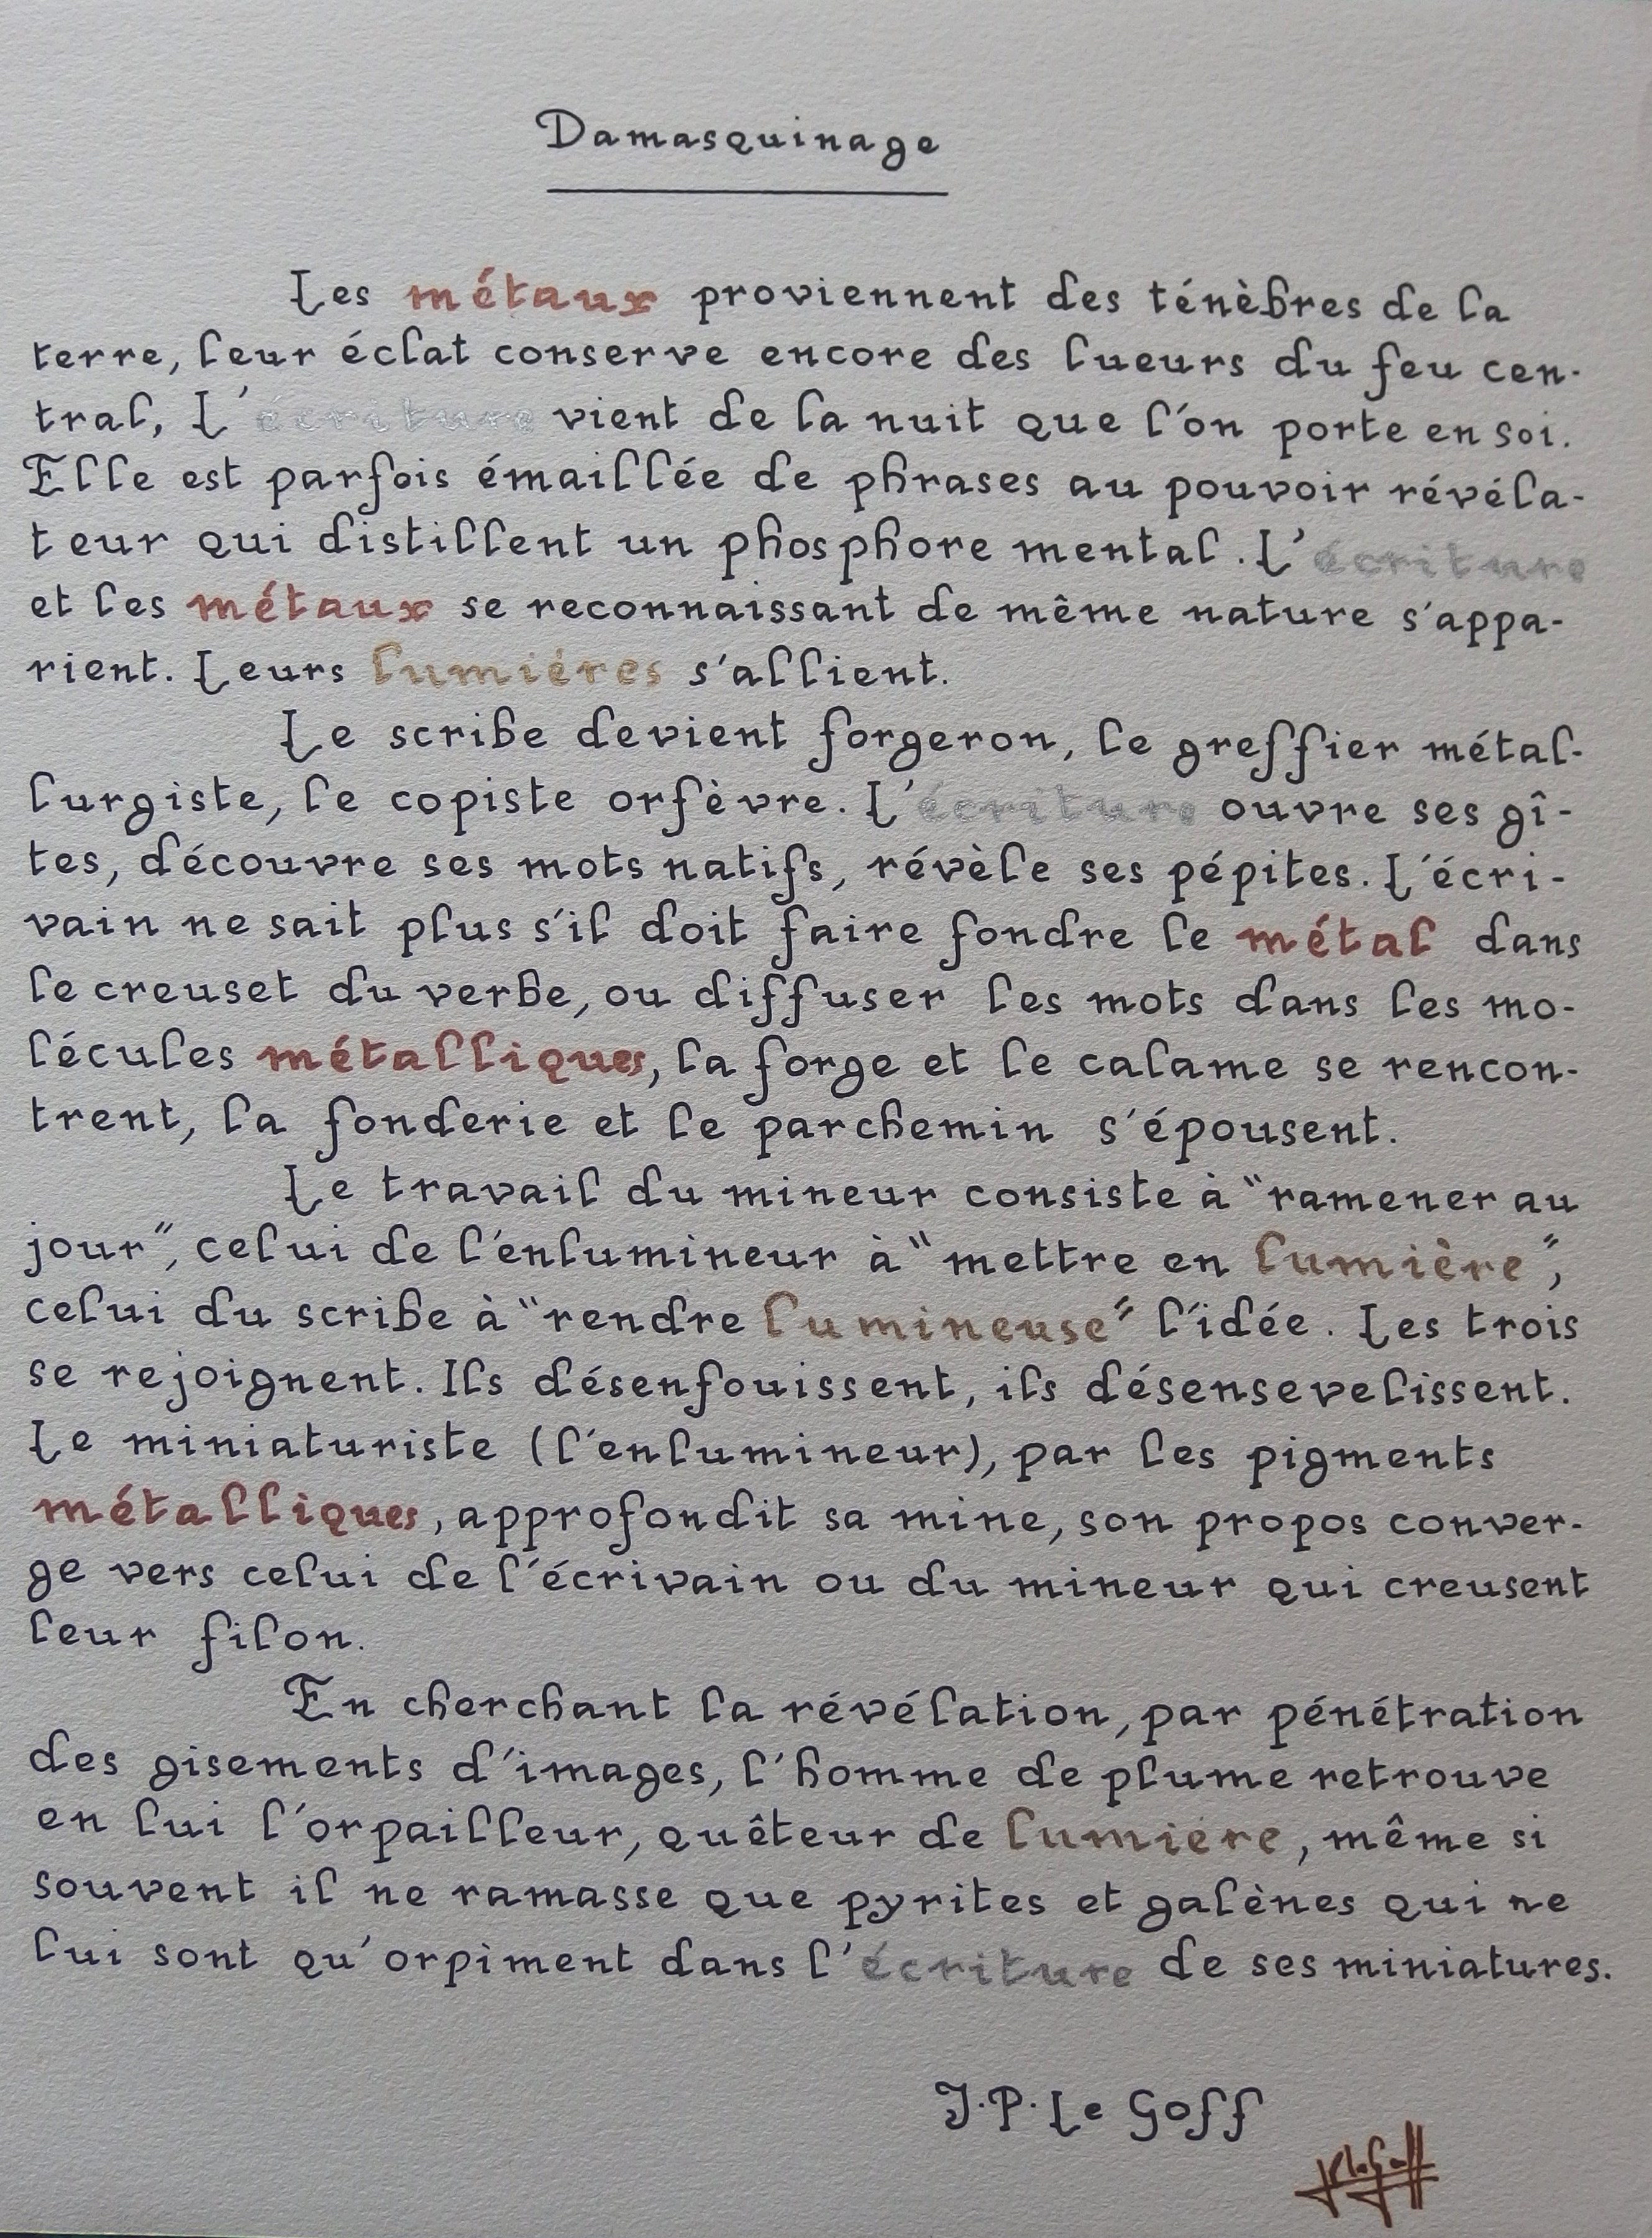 Damasquinage
Les métaux proviennent des ténèbres de la
terre, leur éclat conserve encore des lueurs du feu cen-
tral, L'écriture vient de la nuit que l'on porte en soi.
Elle est parfois émaillée de phrases au pouvoir révéla-
teur qui distillent un phosphore mental. L'écriture
et les métaux se reconnaissant de même nature s'appa-
rient. Leurs lumières s'allient.
Le scribe devient forgeron, le greffier métal-
lurgiste, le copiste orfèvre. L'écriture ouvre ses gî-
tes, découvre ses mots natifs, révèle ses pépites. L'écri-
vain ne sait plus s'il doit faire fondre le métal dans
le creuset du verbe, ou diffuser les mots dans les mo-
lécules métalliques, la forge et le calame se rencon-
trent, la fonderie et le parchemin s'épousent.
Le travail du mineur consiste à "ramener au
jour", celui de l'enlumineur à "mettre en lumière",
celui du scribe à "rendre lumineuse" l'idée. Les trois
se rejoignent. Ils désenfouissent, ils désensevelissent.
Le miniaturiste (l'enlumineur), par les pigments
métalliques, approfondit sa mine, son propos conver-
ge vers celui de l'écrivain ou du mineur qui creusent
leur filon.
En cherchant la révélation, par pénétration
des gisements d'images, l'homme de plume retrouve
en lui l'orpailleur, quêteur de lumière, même si
souvent il ne ramasse que pyrites et galènes qui ne
lui sont qu'orpiment dans l'écriture de ses miniatures.
J.P. Le Goff